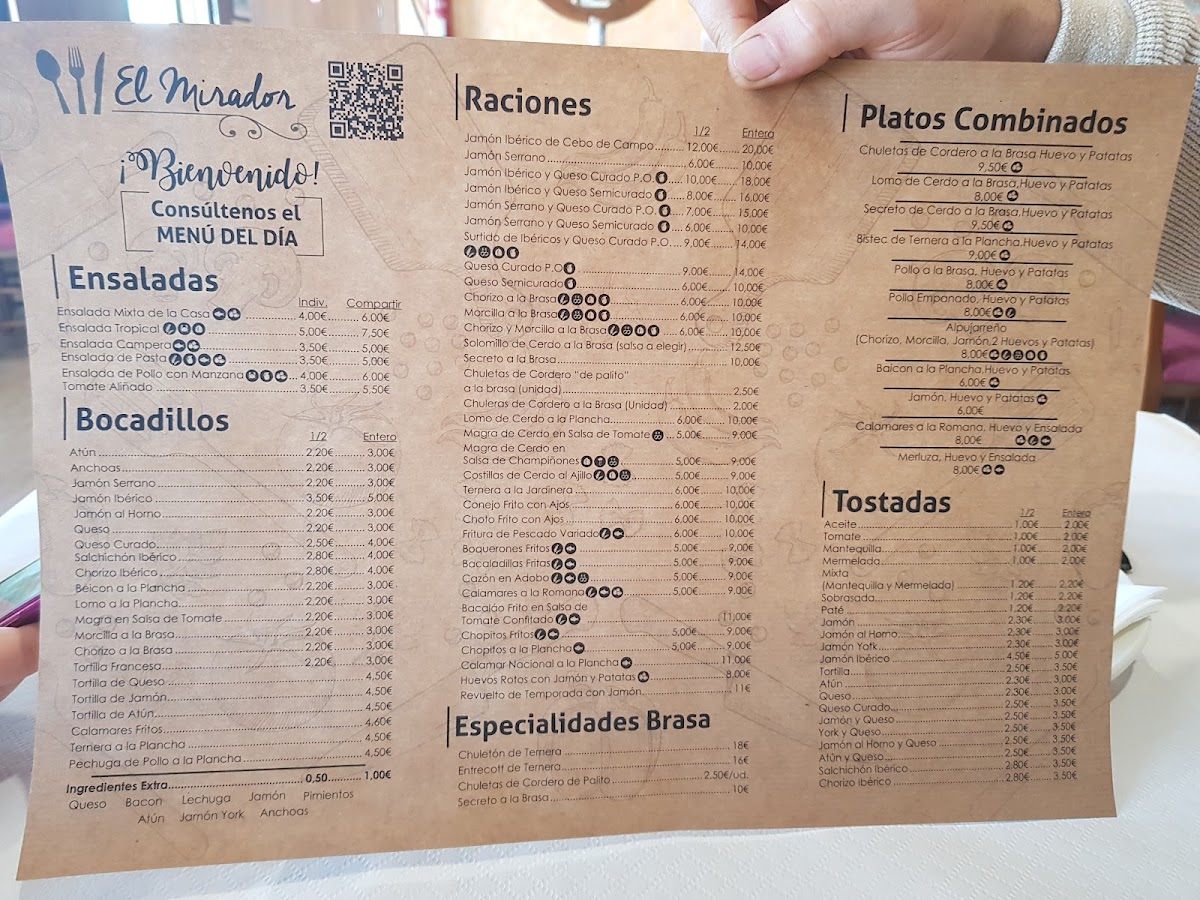 El Mirador
¡Bienvenido!
Consúltenos el
MENÚ DEL DÍA
Ensaladas
Indiv. Compartir
Ensalada Mixta de la Casa 4,00€ 6,00€
Ensalada Tropical 5,00€ 7,50€
Ensalada Campera 3,50€ 5,00€
Ensalada de Pasta 3,50€ 5,00€
Ensalada de Pollo con Manzana 4,00€ 6,00€
Tomate Aliñado 3,50€ 5,50€
Bocadillos
1/2 Entero
Atún 2,20€ 3,00€
Anchoas 2,20€ 3,00€
Jamón Serrano 2,20€ 3,00€
Jamón Ibérico 3,50€ 5,00€
Jamón al Horno 2,20€ 3,00€
Queso 2,20€ 3,00€
Queso Curado 2,50€ 4,00€
Salchichón Ibérico 2,80€ 4,00€
Chorizo Ibérico 2,80€ 4,00€
Beicon a la Plancha 2,20€ 3,00€
Lomo a la Plancha 2,20€ 3,00€
Magra en Salsa de Tomate 2,20€ 3,00€
Morcilla a la Brasa 2,20€ 3,00€
Chorizo a la Brasa 2,20€ 3,00€
Tortilla Francesa 2,20€ 3,00€
Tortilla de Queso 4,50€
Tortilla de Jamón 4,50€
Tortilla de Atún 4,50€
Calamares Fritos 4,60€
Ternera a la Plancha 4,50€
Pechuga de Pollo a la Plancha 4,50€
Ingredientes Extra 0,50 1,00€
Queso Bacon Lechuga Jamón Pimientos
Atún Jamón York Anchoas
Raciones
1/2 Entera
Jamón Ibérico de Cebo de Campo 12,00€ 20,00€
Jamón Serrano 6,00€ 10,00€
Jamón Ibérico y Queso Curado P.O. 10,00€ 18,00€
Jamón Ibérico y Queso Semicurado 8,00€ 16,00€
Jamón Serrano y Queso Curado P.O. 7,00€ 15,00€
Jamón Serrano y Queso Semicurado 6,00€ 10,00€
Surtido de Ibéricos y Queso Curado P.O. 9,00€ 14,00€
Queso Curado P.O 9,00€ 14,00€
Queso Semicurado 6,00€ 10,00€
Chorizo a la Brasa 6,00€ 10,00€
Morcilla a la Brasa 6,00€ 10,00€
Chorizo y Morcilla a la Brasa 6,00€ 10,00€
Solomillo de Cerdo a la Brasa (salsa a elegir) 12,50€
Secreto a la Brasa 10,00€
Chuletas de Cordero "de palito"
a la brasa (unidad) 2,50€
Chuleras de Cordero a la Brasa (Unidad) 2,00€
Lomo de Cerdo a la Plancha 6,00€ 10,00€
Magra de Cerdo en Salsa de Tomate 5,00€ 9,00€
Magra de Cerdo en
Salsa de Champiñones 5,00€ 9,00€
Costillas de Cerdo al Ajillo 5,00€ 9,00€
Ternera a la Jardinera 6,00€ 10,00€
Conejo Frito con Ajos 6,00€ 10,00€
Choto Frito con Ajos 6,00€ 10,00€
Fritura de Pescado Variado 6,00€ 10,00€
Boquerones Fritos 5,00€ 9,00€
Bacaladillas Fritas 5,00€ 9,00€
Cazón en Adobo 5,00€ 9,00€
Calamares a la Romana 5,00€ 9,00€
Bacalao Frito en Salsa de
Tomate Confitado 11,00€
Chopitos Fritos 5,00€ 9,00€
Chopitos a la Plancha 5,00€ 9,00€
Calamar Nacional a la Plancha 11,00€
Huevos Rotos con Jamón y Patatas 8,00€
Revuelto de Temporada con Jamón 11€
Especialidades Brasa
Chuletón de Ternera 18€
Entrecott de Ternera 16€
Chuletas de Cordero de Palito 2,50€/ud.
Secreto a la Brasa 10€
Platos Combinados
Chuletas de Cordero a la Brasa Huevo y Patatas
9,50€
Lomo de Cerdo a la Brasa,Huevo y Patatas
8,00€
Secreto de Cerdo a la Brasa,Huevo y Patatas
9,50€
Bistec de Ternera a la Plancha,Huevo y Patatas
9,00€
Pollo a la Brasa, Huevo y Patatas
8,00€
Pollo Empanado, Huevo y Patatas
8,00€
Alpujarreño
(Chorizo, Morcilla, Jamón,2 Huevos y Patatas)
8,00€
Baicon a la Plancha,Huevo y Patatas
6,00€
Jamón, Huevo y Patatas
6,00€
Calamares a la Romana, Huevo y Ensalada
8,00€
Merluza, Huevo y Ensalada
8,00€
Tostadas
1/2 Entera
Aceite 1,00€ 2,00€
Tomate 1,00€ 2,00€
Mantequilla 1,00€ 2,00€
Mermelada 1,00€ 2,00€
Mixta
(Mantequilla y Mermelada) 1,20€ 2,20€
Sobrasada 1,20€ 2,20€
Paté 1,20€ 2,20€
Jamón 2,30€ 3,00€
Jamón al Horno 2,30€ 3,00€
Jamón York 2,30€ 3,00€
Jamón Ibérico 4,50€ 5,00€
Tortilla 2,50€ 3,50€
Atún 2,30€ 3,00€
Queso 2,30€ 3,00€
Queso Curado 2,50€ 3,50€
Jamón y Queso 2,50€ 3,50€
York y Queso 2,50€ 3,50€
Jamón al Horno y Queso 2,50€ 3,50€
Atún y Queso 2,50€ 3,50€
Salchichón Ibérico 2,80€ 3,50€
Chorizo Ibérico 2,80€ 3,50€